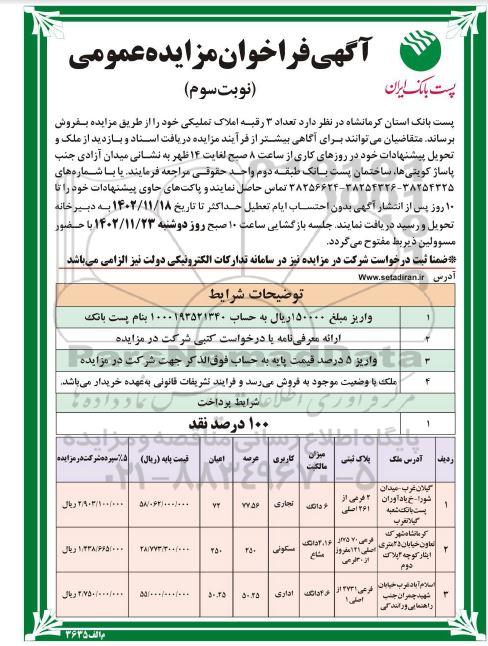 آگهی فراخوان مزایده عمومی
(نوبت سوم)
پست بانک ایران
پست بانک استان کرمانشاه در نظر دارد تعداد ۳ رقبه املاک تملیکی خود را از طریق مزایده بفروش
برساند. متقاضیان می‌توانند برای آگاهی بیشتر از فرآیند مزایده دریافت اسناد و بازدید از ملک و
تحویل پیشنهادات خود در روزهای کاری از ساعت ۸ صبح لغایت ۱۴ ظهر به نشانی میدان آزادی جنب
پاساژ کویتی‌ها، ساختمان پست بانک طبقه دوم واحد حقوقی مراجعه فرمایند. یا با شماره‌های
۳۸۲۵۴۳۲۵-۳۸۲۵۴۳۲۶-۳۸۲۵۶۶۲۴ تماس حاصل نمایند و پاکت‌های حاوی پیشنهادات خود را تا
۱۰ روز پس از انتشار آگهی بدون احتساب ایام تعطیل حداکثر تا تاریخ ۱۴۰۲/۱۱/۱۸ به دبیرخانه
تحویل و رسید دریافت نمایند. جلسه بازگشایی ساعت ۱۰ صبح روز دوشنبه ۱۴۰۲/۱۱/۲۳ با حضور
مسوولین ذیربط مفتوح می‌گردد.
*ضمنا ثبت درخواست شرکت در مزایده نیز در سامانه تدارکات الکترونیکی دولت نیز الزامی می‌باشد
آدرس www.setadiran.ir
توضیحات شرایط
۱ واریز مبلغ ۱۵۰۰۰۰۰ ریال به حساب ۱۰۰۰۱۹۳۵۲۱۳۴۰ بنام پست بانک
۲ ارائه معرفی‌نامه یا درخواست کتبی شرکت در مزایده
۳ واریز ۵ درصد قیمت پایه به حساب فوق‌الذکر جهت شرکت در مزایده
۴ ملک با وضعیت موجود به فروش می‌رسد و فرایند تشریفات قانونی به‌عهده خریدار می‌باشد.
شرایط پرداخت
۱ ۱۰۰ درصد نقد
ردیف آدرس ملک پلاک ثبتی میزان مالکیت کاربری عرصه اعیان قیمت پایه (ریال) ۵٪سپرده شرکت در مزایده
۱ گیلان‌غرب-میدان شورا-خ یادآوران پست‌بانک شعبه گیلانغرب ۲ فرعی از ۲۶۱ اصلی ۶ دانگ تجاری ۷۷.۵۶ ۷۲ ۵۸/۰۶۲/۰۰۰/۰۰۰ ۲/۹۰۳/۱۰۰/۰۰۰ ریال
۲ کرمانشاه شهرک تعاون خیابان ۲۵متری ایثار کوچه ۴ پلاک دوم فرعی ۷۵۷۰ از اصلی ۱۲۱ مفروز از ۳۰ فرعی ۴.۱۶ دانگ مشاع مسکونی ۲۵۰ ۲۵۰ ۲۸/۷۷۳/۳۰۰/۰۰۰ ۱/۴۳۸/۶۶۵/۰۰۰ ریال
۳ اسلام‌آباد غرب خیابان شهید چمران جنب راهنمایی و رانندگی فرعی ۲۷۳۱ از اصلی ۱ ۴.۶ دانگ اداری ۵۰.۲۵ ۵۰.۲۵ ۵۵/۰۰۰/۰۰۰/۰۰۰ ۲/۷۵۰/۰۰۰/۰۰۰ ریال
پایگاه اطلاع رسانی مناقصه و مزایده
۰۲۱-۸۸۳۴۹۶۷۰-۵
م‌الف ۳۶۳۵